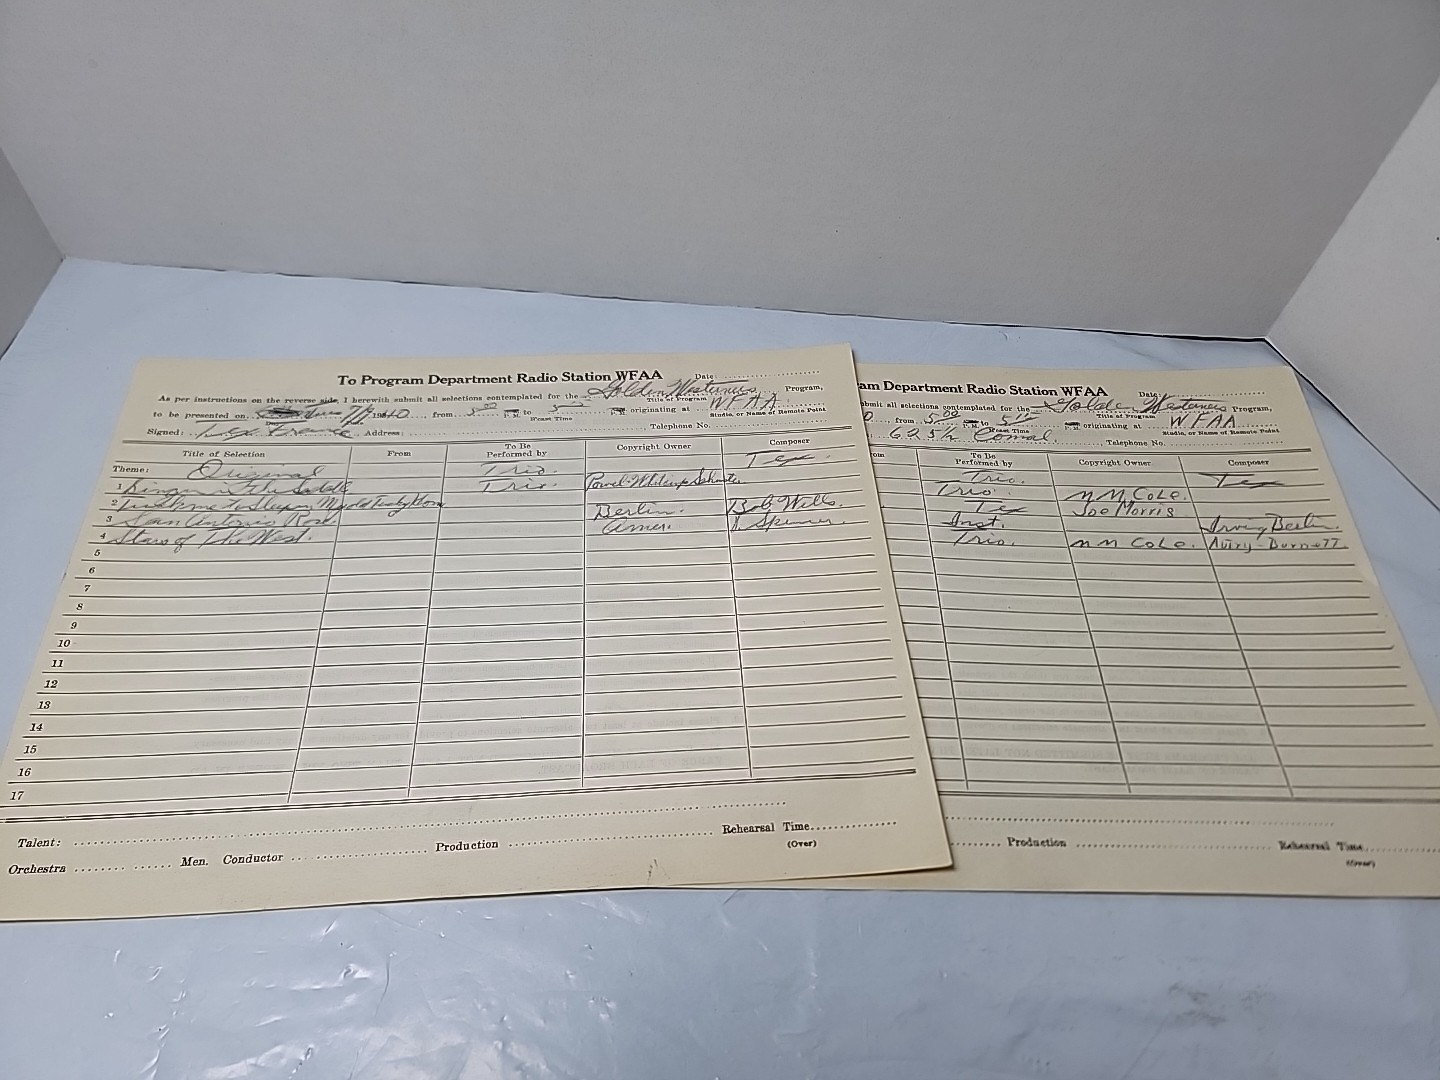 To Program Department Radio Station WFAA
Date:
As per instructions on the reverse side, I herewith submit all selections contemplated for the Golden Westerners Program,
Title of Program
to be presented on 7/9 1940 from 5 00 P.M. to 5 P.M. originating at WFAA
Date
Coast Time
Studio, or Name of Remote Point
Signed: Tex Address: Telephone No.
Title of Selection From To Be Performed by Copyright Owner Composer
Theme: Original Trio. Tex.
1 Singin in the Saddle Trio. Powel
2 to Sleep in My Old
3 San Antonio Rose Berlin. Bob Wills.
4 Stars of the West. Amer. Spencer.
5
6
7
8
9
10
11
12
13
14
15
16
17
Talent:
Orchestra Men. Conductor Production Rehearsal Time
(Over)
am Department Radio Station WFAA
Date:
ubmit all selections contemplated for the Golden Westerners Program,
Title of Program
0 from 5 00 P.M. to 5 15 P.M. originating at WFAA
Coast Time
Studio, or Name of Remote Point
625 1/2 Comal. Telephone No.
rom To Be Performed by Copyright Owner Composer
Trio. Tex
Trio. M M Cole.
Tex Joe Morris
Inst. Irving Berlin.
Trio. M M Cole. Autry-Burnett
Production Rehearsal Time
(Over)